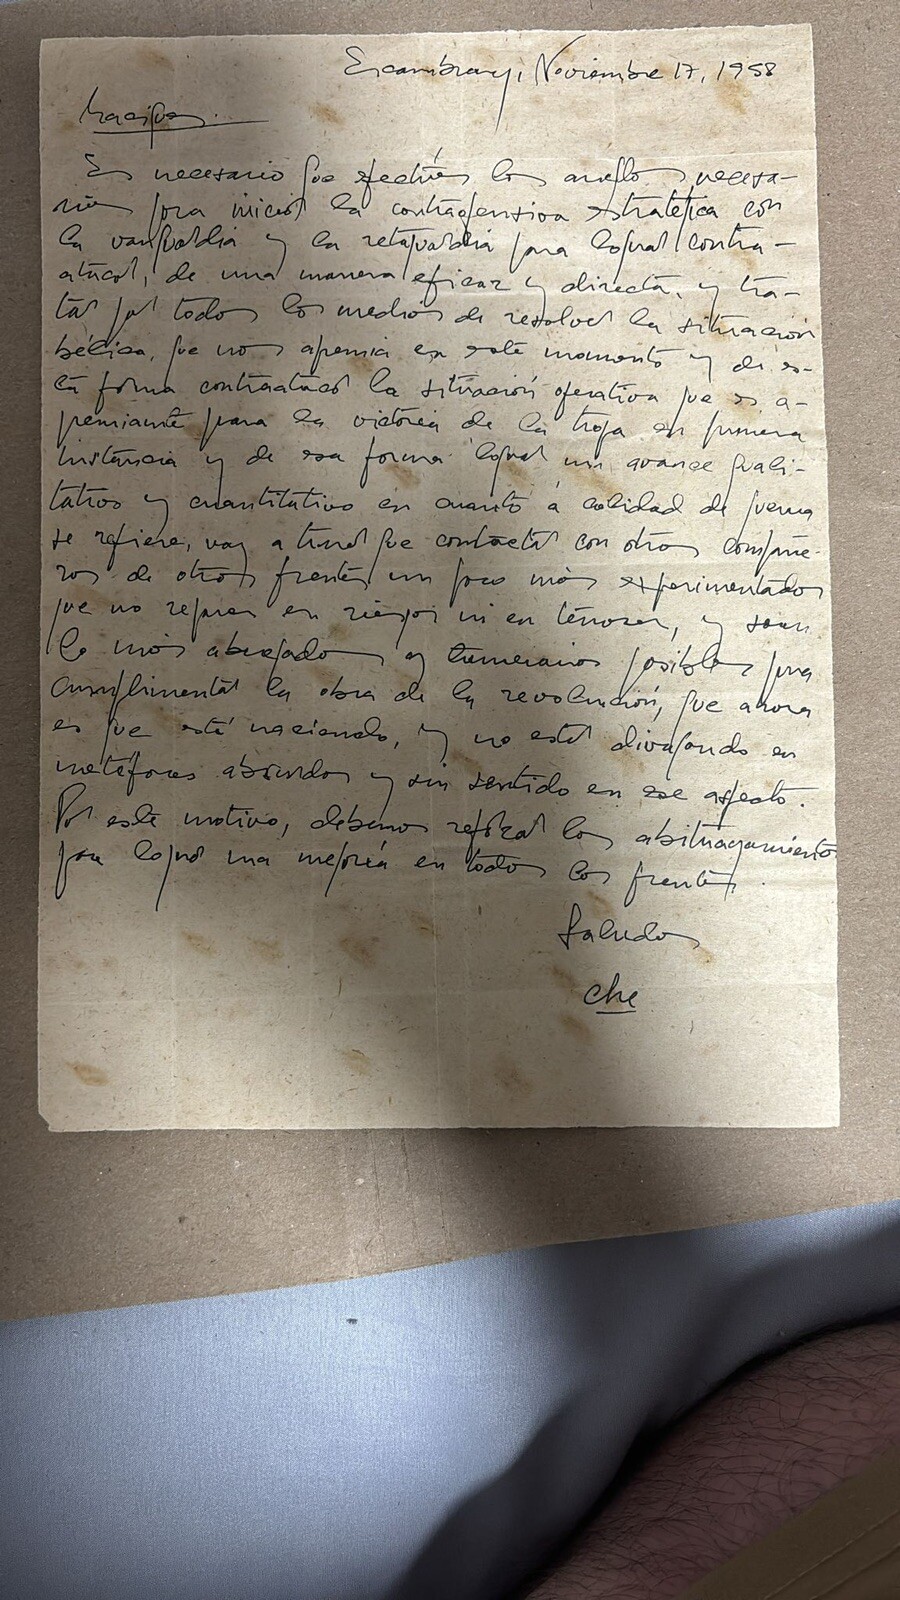 Escambray, Noviembre 17, 1958
Es necesario que efectúes los arreglos necesa-
rios para iniciar la contraofensiva estratégica con
la vanguardia y la retaguardia para lograr contra-
atacar, de una manera eficaz y directa, y tra-
tar por todos los medios de resolver la situación
bélica, que nos apremia en este momento y de es-
ta forma contraatacar la situación operativa que es a-
premiante para la victoria de la tropa en primera
instancia y de esa forma lograr un avance quali-
tativo y cuantitativo en cuanto a calidad de guerra
se refiere, vas a tener que contactar con otros compañe-
ros de otros frentes un poco más experimentados
que no reparen en riesgos ni en temores, y sean
lo más abnegados y temerarios posibles para
cumplimentar la obra de la revolución, que ahora
es que está naciendo, y no estar divagando en
metáforas absurdas y sin sentido en ese aspecto.
Por este motivo, debemos reforzar los
para lograr una mejoría en todos los frentes.
Saludos
Che